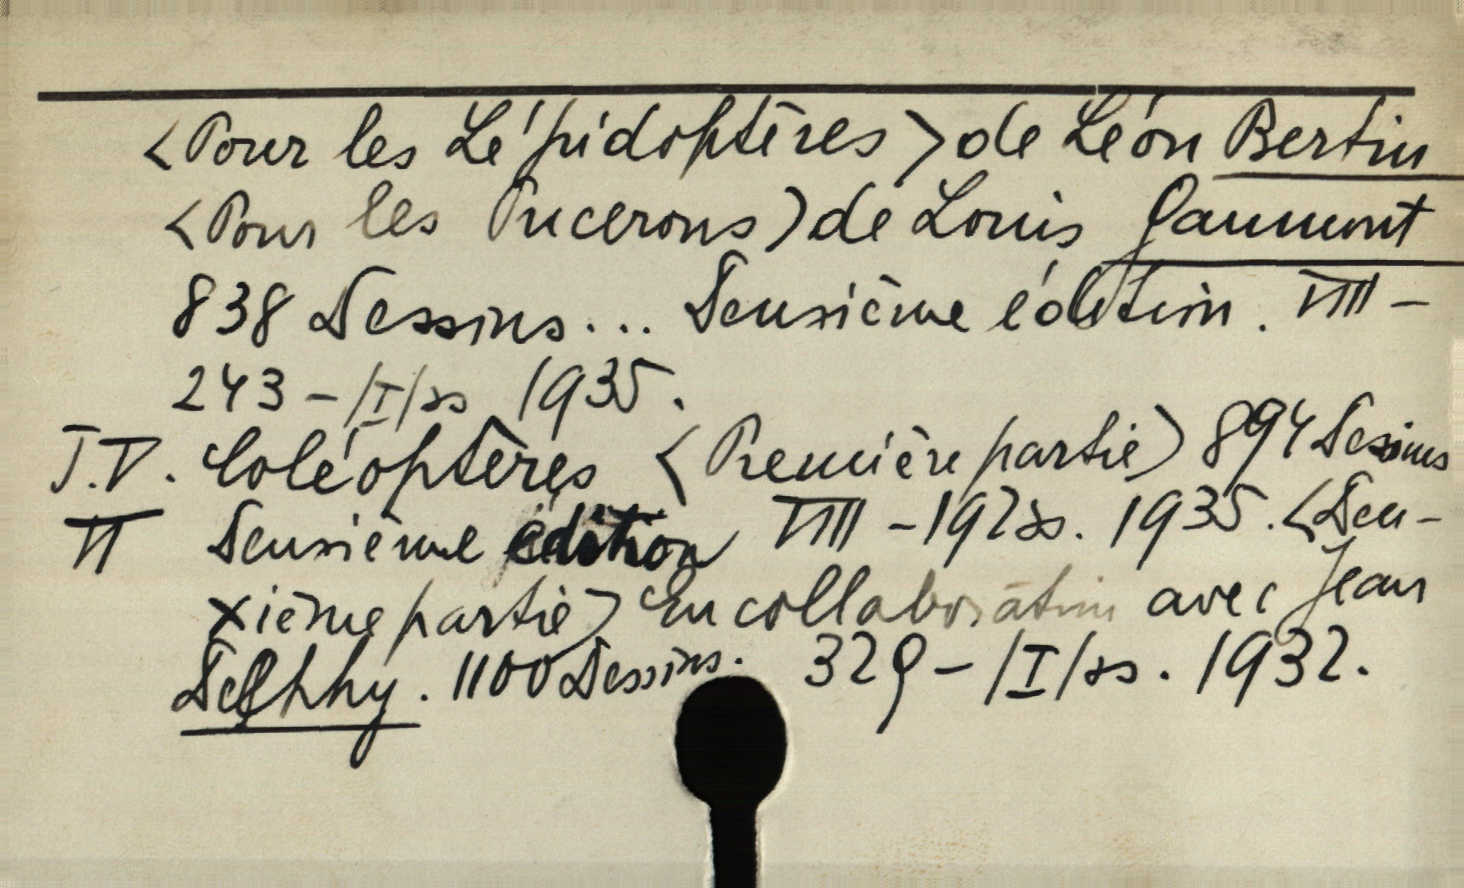 <Pour les Lépidoptères> de Léon Bertin
<Pour les Pucerons> de Louis Gaumont
838 Dessins... Deuxième édition. VIII -
243 - /I/ ss 1935.
T.V. Coléoptères <Première partie> 894 Dessins
VI Deuxième édition VIII - 192 ss. 1935. <Deu-
xième partie> En collaboration avec Jean
Delphy. 1100 Dessins. 329 - /I/ ss. 1932.